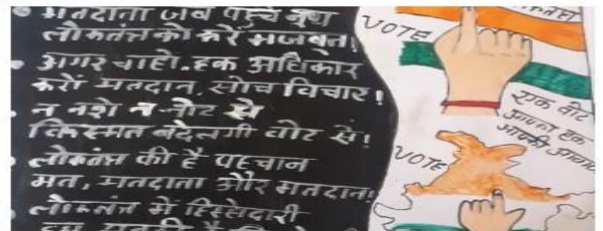 मतदाता जब पहुंचे बूथ
लोकतंत्र को करें मजबूत।
अगर चाहो हक अधिकार
करों मतदान, सोच विचार!
न नशे न नोट से
किस्मत बदलेगी वोट से।
लोकतंत्र की है पहचान
मत, मतदाता और मतदान।
लोकतंत्र में हिस्सेदारी
VOTE
एक वोट
आपका हक
आपकी
VOTE